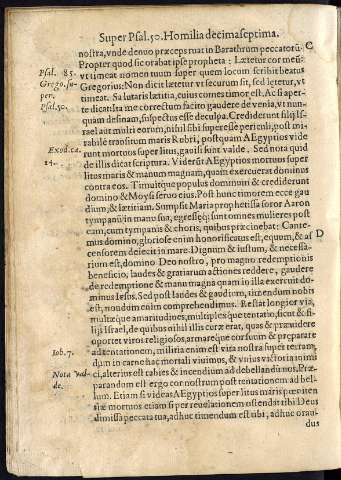 Super Psal. 50. Homilia decimaseptima.
nostra, vnde denuo præceps ruat in Barathrum peccatorũ. C
Propter quod sic orabat ipse propheta: Lætetur cor meũ
Psal. 85.
vt timeat nomen tuum super quem locum scribit beatus
Grego. su-
Gregorius: Non dicit lætetur vt securum sit, sed letetur, vt
per.
timeat. Sa lutaris lætitia, cuius comes timor est. Ac si aper-
Psal. 50.
te dicat: Ita me correctum facito gaudere de venia, vt nun-
quam desinam, suspectus esse de culpa. Crediderunt filij Is-
rael aut multi eorum, nihil sibi superesse periculi, post mi-
rabilẽ transitum maris Rubri, postquam AEgyptios vide
Exod. ca.
runt mortuos super litus, gauisi sunt valde. Sed nota quid
14.
de illis dicat scriptura. Viderũt AEgyptios mortuos super
litus maris & manum magnam, quam exercuerat dominus
contra eos. Timuitque populus dominum & crediderunt
domino & Moysi seruo eius. Post hunc timorem ecce gau
dium, & lætitiam. Sumpsit Maria prophetissa soror Aaron
tympanũ in manu sua, egressęq; sunt omnes mulieres post
eam, cum tympanis & choris, quibus præcinebat: Cante-
mus domino, gloriose enim honorificatus est, equum, & as D
censorem deiecit in mare. Dignum & iustum, & necessa-
rium est, domino Deo nostro, pro magno redemptionis
beneficio, laudes & gratiarum actiones reddere, gaudere
de redemptione & manu magna quam in illa exercuit do-
minus Iesus. Sed post laudes & gaudium, timendum nobis
est, nondum enim comprehendimus. Restat longior via,
multæque amaritudines, multiplex que tentatio, sicut & fi-
lijs Israel, de quibus nihil illi curæ erat, quas & præuidere
oportet viros religiosos, armareque cor suum & preparare
Iob. 7.
ad tentationem, militia enim est vita nostra super terram,
dum in carne hac mortali viuimus, & vnius victoria inimi
Nota val-
ci, alterius est rabies & incendium ad debellandũ nos. Præ-
de.
parandum est ergo cor nostrum post tentationem ad bel-
lum. Etiam si videas AEgyptios super litus maris pœniten
tiæ mortuos etiam si per reuelationem ostendat tibi Deus
dimissa peccata tua, adhuc timendum est tibi, adhuc oran/
dus